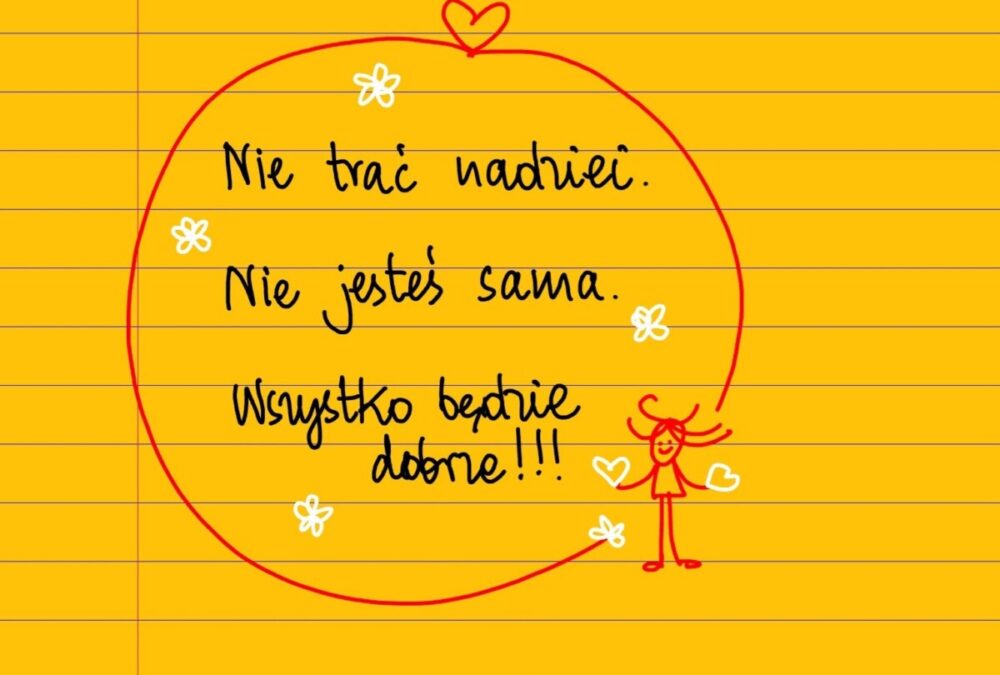 Nie trać nadziei.
Nie jesteś sama.
Wszystko będzie
dobrze!!!